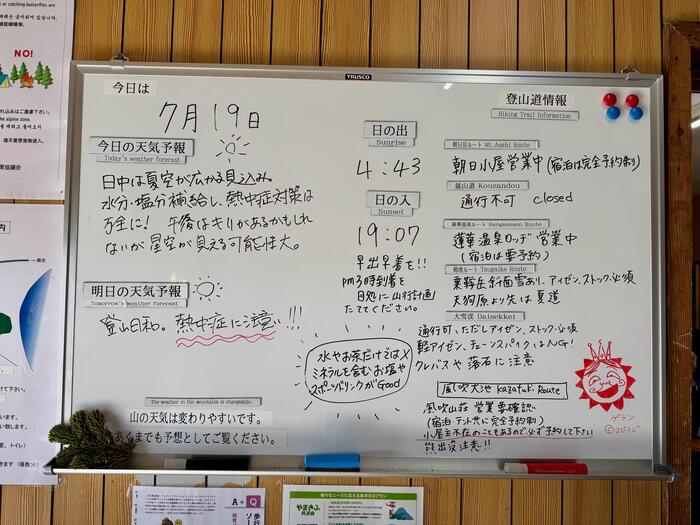 TRUSCO
今日は
7月19日
今日の天気予報
Today's weather forecast
日中は夏空が広がる見込み。
水分・塩分補給し、熱中症対策は
万全に! 午後はキリがあるかもしれ
ないが星空が見える可能性大。
明日の天気予報
Tomorrow's weather forecast
登山日和。熱中症に注意!!!
The weather in the mountains is changeable.
山の天気は変わりやすいです。
あくまでも予想としてご覧ください。
日の出
Sunrise
4:43
日の入
Sunset
19:07
早出早着を!!
pm3時到着を
目処に山行計画
たててください。
水やお茶だけではX
ミネラルを含むお塩や
スポーツドリンクがGood
登山道情報
Hiking Trail Information
朝日岳ルート Mt.Asahi Route
朝日小屋営業中(宿泊は完全予約制)
鉱山道 Kouzandou
通行不可 closed
蓮華温泉ルート Rengeonsen Route
蓮華温泉ロッヂ 営業中
(宿泊は要予約)
栂池ルート Tsugaike Route
乗鞍岳斜面雪あり、アイゼン、ストック必須
天狗原より先は夏道
大雪渓 Daisekkei
通行可、ただしアイゼン、ストック必須
軽アイゼン、チェーンスパイクはNG!
クレバスや落石に注意
風吹大池 Kazafuki Route
風吹山荘 営業要確認
(宿泊・テント共に完全予約制)
小屋主不在のこともあるので必ず予約して下さい
熊出没注意!!
ゲラン
©コジコジ
or catching butterflies are
NO!
れ込みはご遠慮下さい。
the alpine zone.
策協議会
内
けて下さい。
室、トイレ)
きます(張数分)
A
Q
やまきふ
共済会
様々なニーズに応える基本の3プラン